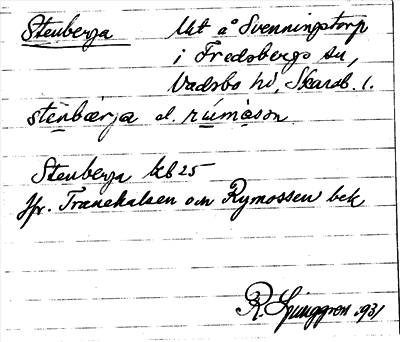 Stenberga Ut å Svenningstorp
i Fredsbergs sn,
Vadsbo hd, Skarab. l.
stènbærja el. rúmòsen
Stenberga kb 25
Jfr. Tranehalsen och Rymossen bek
R. Ljunggren 1931